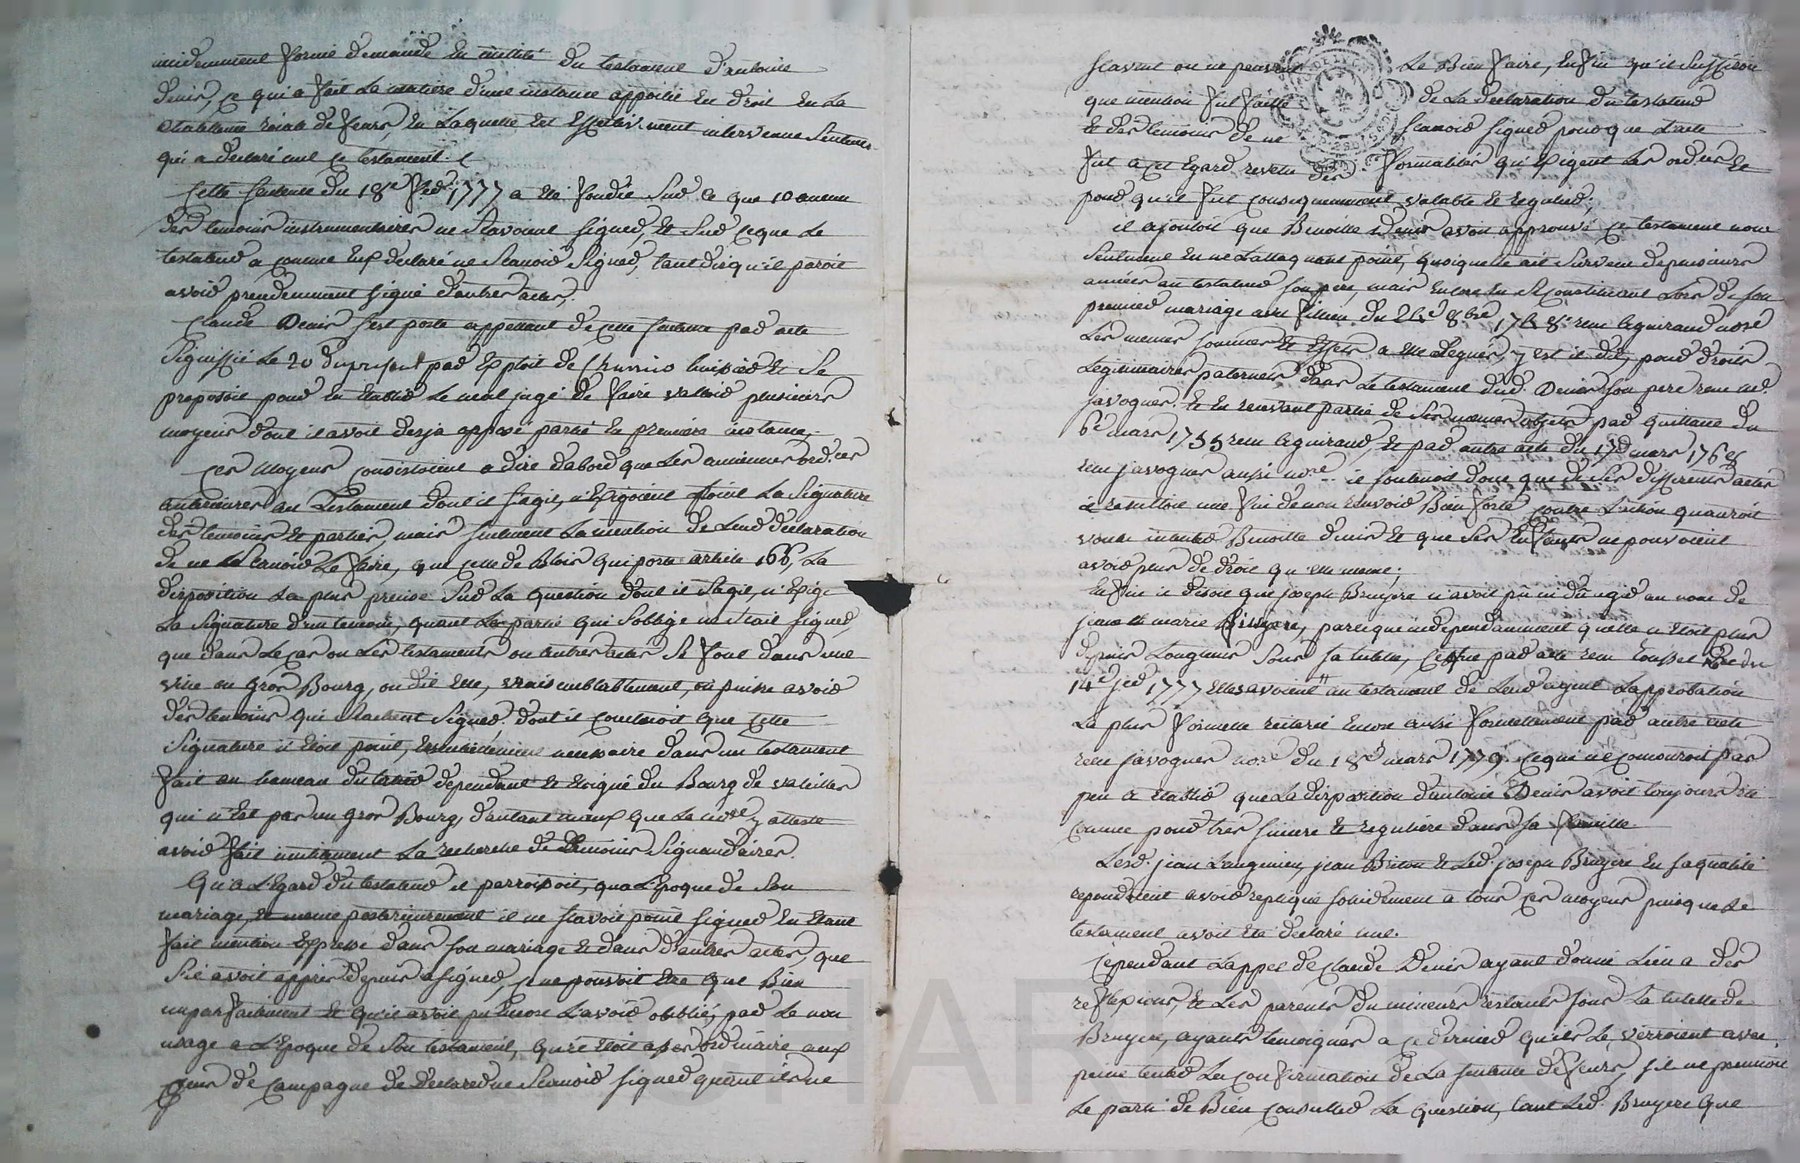 incidemment formé demande en nullité du testament d'antoine
denis, ce qui a fait la matiere d'une instance appointée en droit en la
chatellenie roiale de feurs en laquelle est effectivement intervenue sentence
qui a declaré nul ce testament.
Cette sentence du 18e 1777 a été fondée sur ce que 10 aucun
des temoins instrumentaires ne sçavoient signer, et sur ce que le
testateur a comme eux declaré ne sçavoir signer, tandis qu'il paroit
avoir precedemment signé d'autres actes,
Claude Denis s'est porté appellant de cette sentence par acte
signiffié le 20 du present par exploit de huissier et se
proposoit pour en etablir le mal jugé de faire valloir plusieurs
moyens dont il avoit desja opposé partie en premiere instance,
Ces moyens consistoient a dire d'abord que les anciennes ord.ces
anterieures au testament dont il s'agit, n'exigoient point la signature
des temoins et parties, mais seulement la mention de leur declaration
de ne sçavoir le faire, que celle de Blois qui porte article 166, la
disposition la plus precise sur la question dont il s'agit, n'exige
la signature d'un temoin, quant la partie qui s'oblige ne sçait signer,
que dans le cas ou les testaments ou autres actes se font dans une
ville ou gros Bourg, ou dit elle, vraisemblablement, on puisse avoir
des temoins qui sachent signer. dont il concluoit que cette
signature n'étoit point, necessaire dans un testament
fait au hameau du dependant et eloigné du Bourg de valeilles
qui n'est pas un gros Bourg, d'autant mieux que le no.re y atteste
avoir fait inutilement la recherche de temoins signandaires.
Qu'a l'égard du testateur il parroissoit, qua l'epoque de son
mariage, et meme posterieurement il ne sçavoit point signer en etant
fait mention expresse dans son mariage et dans d'autres actes, que
s'il avoit appris depuis a signer, ce ne pouvoit etre que Bien
imparfaitement et qu'il avoit pu encore l'avoir oublié, par le non
usage a l'epoque de son testament, qu'il étoit assés ordinaire aux
gens de campagne de declarer ne sçavoir signer quand ils ne
sçavent ou ne peuvent le Bien faire, enfin qu'il suffisoit
que mention fut faitte de la declaration du testateur
et des temoins de ne sçavoir signer pour que l'acte
fut a cet egard revetu des formalités qu'exigent les ord.ces et
pour qu'il fut consequemment valable et regulier;
il ajoutoit que Benoitte Denis avoit approuvé ce testament non
seulement en ne l'attaquant point, quoiquelle ait survecu de plusieurs
années au testateur son pere, mais encore en se constituant lors de son
premier mariage avec fillieu du 21e 8bre reçu Leguiraud no.re
les memes sommes et effets a elle legués, y est il dit, pour droits
legitimaires paternels dans le testament dud. Denis son pere reçu me.
javogues. et en recevant partie de ses memes objets par quittance du
6e mars 1755 reçu Leguiraud, et par autre acte du 17e mars
reçu javogues aussi no.re il soutenoit donc que de ses differents actes
il resultoit une fin de non recevoir Bien forte contre l'action quauroit
voulu intenter Benoitte denis et que ses enfants ne pouvoient
avoir plus de droit qu'elle meme;
Enfin il disoit que joseph Bruyere n'avoit pu ni du agir au nom de
jeanne marie Bruyere, parceque independamment quelle n'etoit plus
depuis longtems sous sa tutelle, par acte reçu Rousset no.re du
14e 1777 elles avoient au testament de leur ayeul l'approbation
la plus formelle reiterée encore aussi formellement par autre acte
reçu javogues no.re du 18e mars 1779. ce qui ne concouroit pas
peu a etablir que la disposition d'antoine Denis avoit toujours été
connue pour tres sincere et reguliere dans sa famille.
Lesd. jean Langinieu, jean Briton et led. joseph Bruyere en sa qualité
repondoient avoir repliqué solidement a tous ces moyens puisque le
testament avoit été declaré nul.
Cependant l'appel de Claude Denis ayant donné lieu a des
reflexions, et les parents du mineurs restants sous la tutelle de
Bruyere, ayants temoignés a ce dernier qu'ils le verroient avec
peine tenter la confirmation de la sentence de feurs, s'il ne prennoit
le parti de Bien consulter la question, tant led. Bruyere que